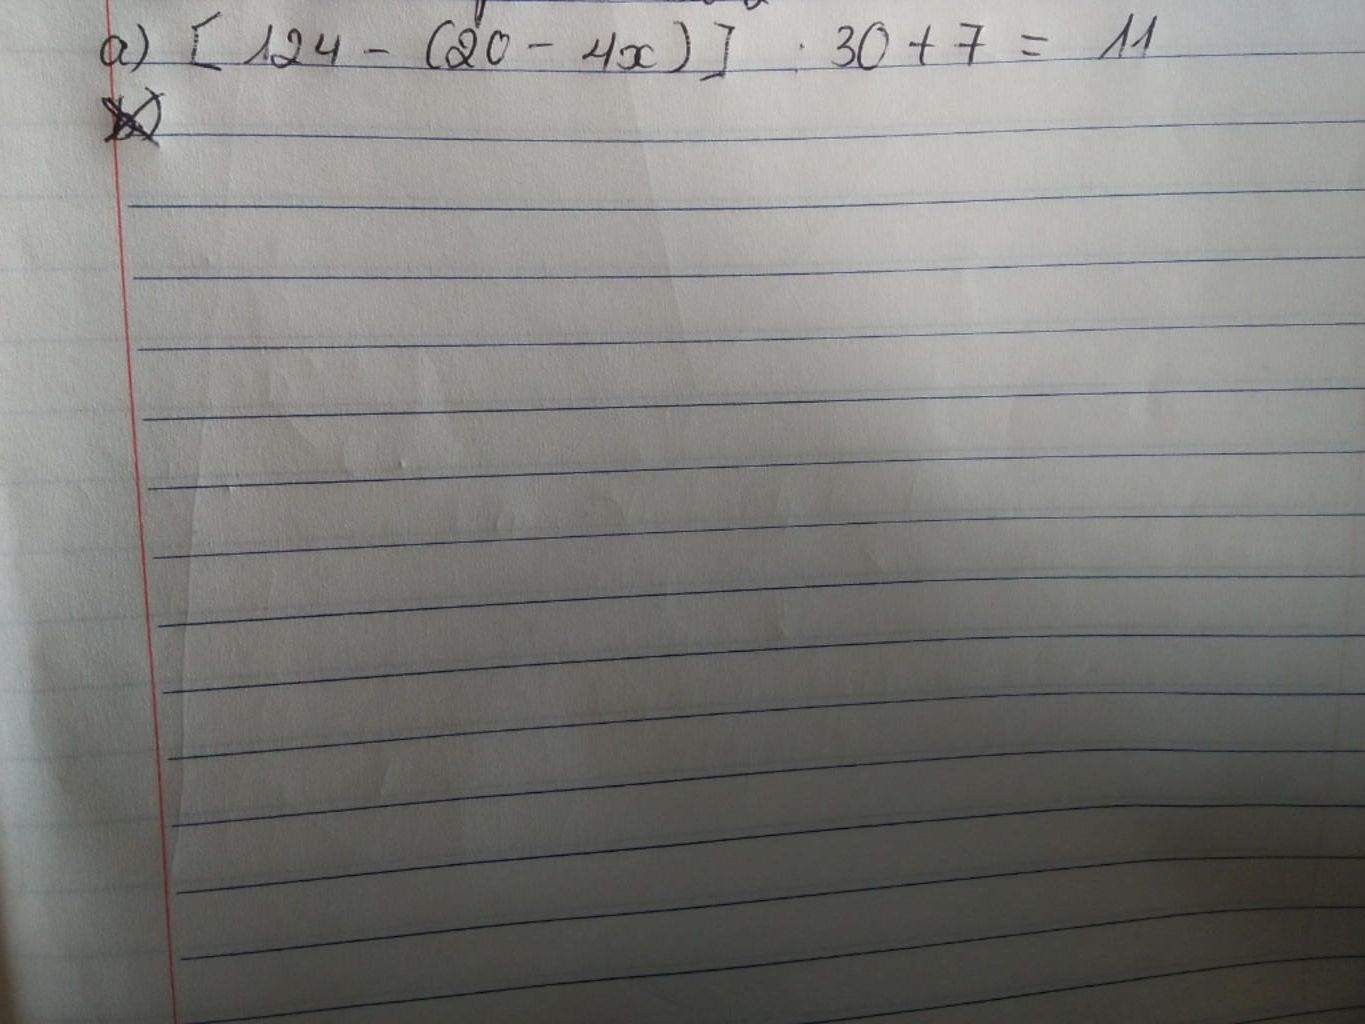 a) [ 124 - (20 - 4x) ] : 30 + 7 = 11